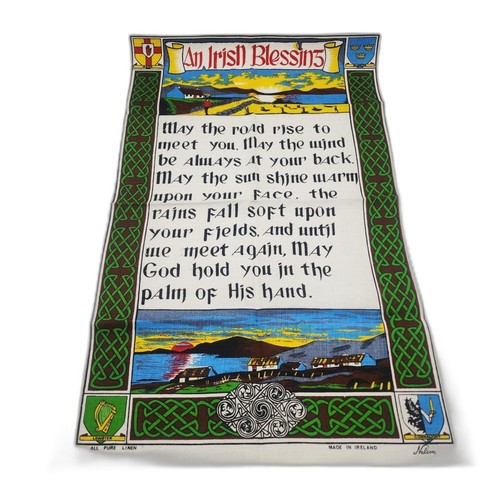 An Irish Blessing
May the road rise to
meet you. May the wind
be always at your back.
May the sun shine warm
upon your face, the
rains fall soft upon
your fields, and until
we meet again, May
God hold you in the
palm of His hand.
LEINSTER
ALL PURE LINEN
MADE IN IRELAND